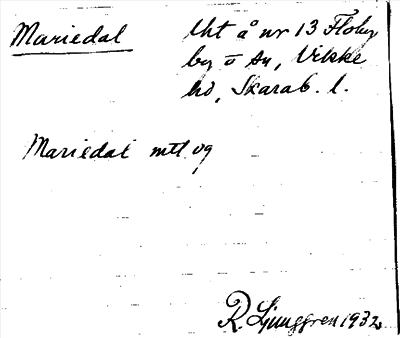 Mariedal
Uht å nr 13 Floby
by o sn, Vilske
hd, Skarab. l.
Mariedal mtl og
R. Ljunggren 1932